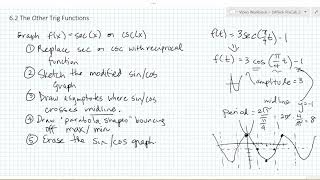 Video Workbook - (MRich PreCalc 2
6.2 The Other Trig Functions
Graph f(x) = sec(x) or csc(x)
① Replace sec or csc with reciprocal
function
② Sketch the modified sin/cos
graph
③ Draw asymptotes where sin/cos
crosses midline.
④ Draw "parabola shapes" bouncing
off max/min
⑤ Erase the sin/cos graph.
f(t) = 3 sec(π/4 t) - 1
f(t) = 3 cos(π/4 t) - 1
amplitude = 3
midline
y = -1
period = 2π/(π/4) = 2π · 4/π = 8